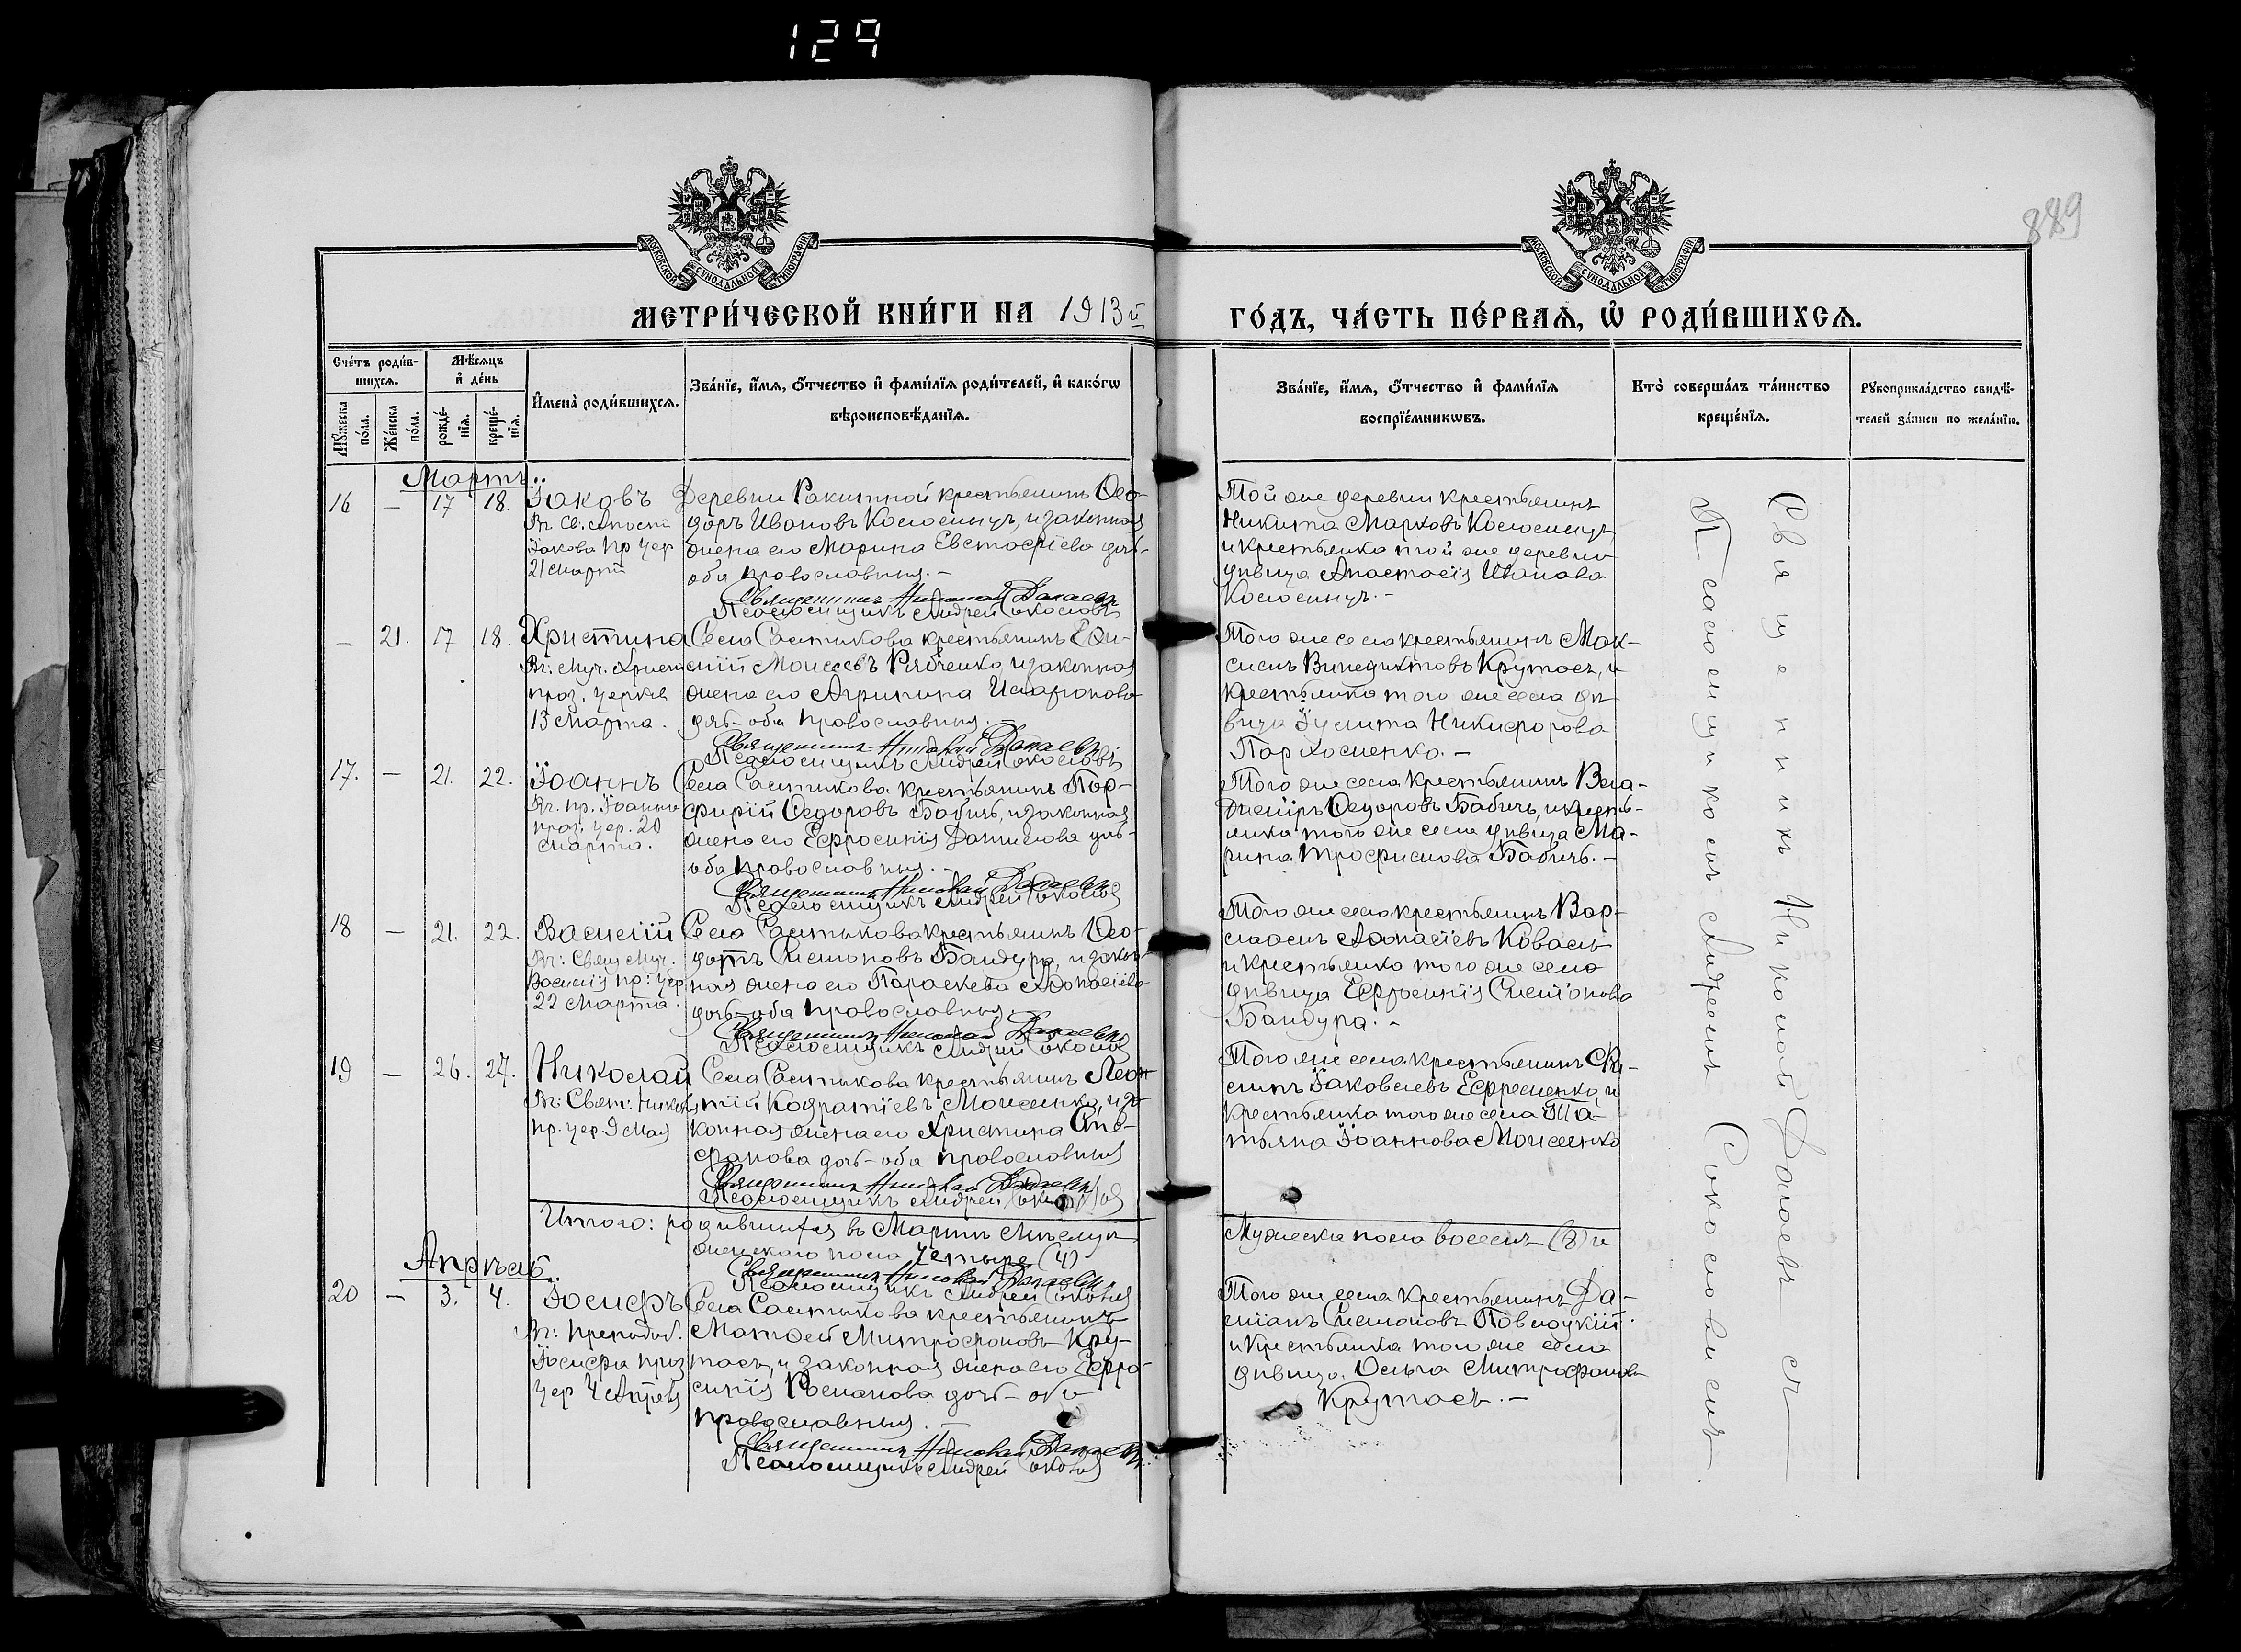 129
889
МЕТРИ́ЧЕСКОЙ КНИ́ГИ НА 1913й
ГО́ДЪ, ЧА́СТЬ ПЕ́РВАѦ, Ѡ҆ РОДИ́ВШИХСѦ.
Сче́тъ роди́в-
шихсѧ.
Мꙋ́жеска
по́ла.
Же́нска
по́ла.
Мѣ́сѧцъ
и҆ де́нь
рожде́-
нїѧ.
креще́-
нїѧ.
И҆мена̀ роди́вшихсѧ.
Зва́нїе, и҆́мѧ, ѻ҆́тчество и҆ фами́лїѧ роди́телей, и҆ како́гѡ
вѣроисповѣ́данїѧ.
Зва́нїе, и҆́мѧ, ѻ҆́тчество и҆ фами́лїѧ
воспрїе́мникѡвъ.
Кто̀ соверша́лъ та́инство
креще́нїѧ.
Рꙋкоприкла́дство свидѣ́-
телей за́писи по жела́нїю.
Мартъ
16 — 17 18. Іаковъ
Въ Св. Апост
Іакова пр цер
21 март
Деревни Ракитной крестьянинъ Ѳео-
доръ Ивановъ, и законная
жена его Марина Евстафіева доч-
оба православныя.—
Священникъ Николай
Псаломщикъ Андрей Соколовъ
Той же деревни крестьянинъ
Никита Марковъ
и крестьянка той же деревни
дѣвица Анастасія Иванова
— 21. 17 18. Христина
Въ: муч. Христ
праз. церков
13 Марта.
Села крестьянинъ
Моисеевъ Рябченко, и законная
жена его Агрипина
дочь-оба православныя.
Священникъ Николай
Псаломщикъ Андрей Соколовъ
Того же села крестьянинъ Мак-
симъ Винедиктовъ Крутась, и
крестьянка того же села дѣ-
вица Іулита Никифорова
Пархоменко.—
17. — 21. 22. Іоаннъ
Въ. пр. Іоанна
праз. цер. 20
марта.
Села крестьянинъ Пор-
фирій Ѳедоровъ Бабичъ, и законная
жена его Ефросинія Данилова доч-
оба православныя.—
Священникъ Николай
Псаломщикъ Андрей Соколовъ
Того же села крестьянинъ Вла-
димиръ Ѳедоровъ Бабичъ, и кресть-
янка того же села дѣвица Ма-
рина Трофимова Бабичъ.—
18 — 21. 22. Василій
Въ: Свящ Муч.
Василія пр: цер
22 Марта.
Села крестьянинъ Ѳео-
дотъ Симоновъ Бандура, и закон-
ная жена его Параскева Аѳонасіева
дочь-оба православныя.
Священникъ Николай
Псаломщикъ Андрей Соколовъ
Того же села крестьянинъ Вар-
лаамъ Аѳанасіевъ Коваль
и крестьянка того же села
дѣвица Ефросинія Симонова
Бандура.—
19 — 26. 27. Николай
Въ: Свят: Никол
пр. цер. 9 Мая
Села крестьянинъ Леон-
тій Кодратіевъ Моисеенко, и за-
конная жена его Христина Сте-
фанова дочь-оба православныя
Священникъ Николай
Псаломщикъ Андрей Соколовъ
Того же села крестьянинъ
Іаковлевъ Ефременко, и
крестьянка того же села Та-
тьяна Іоаннова Моисеенко
Итого: родившихся въ Мартѣ мѣсяцѣ
Мужеска пола восемь (8) и
женскаго пола четыре (4)
Священникъ Николай
Псаломщикъ Андрей Соколовъ
Апрѣль
20 — 3. 4. Іосифъ
Въ: преподоб.
Іосифа праз
цер 4 Апрѣля
Села крестьянинъ
Матѳей Митрофановъ Кру-
тась, и законная жена его Ефро-
синія Романова дочь-оба
православныя.—
Священникъ Николай
Псаломщикъ Андрей Соколовъ
Того же села крестьянинъ Да-
міанъ Симоновъ
и крестьянка того же села
дѣвица Ольга Митрофанова
Крутась.—
Священникъ Николай
съ
Псаломщикомъ Андреемъ Соколовымъ